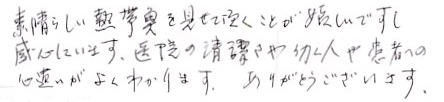 素晴らしい熱帯魚を見せて頂くことが嬉しいですし
感心しています。医院の清潔さや働く人や患者への
心遣いがよくわかります。ありがとうございます。